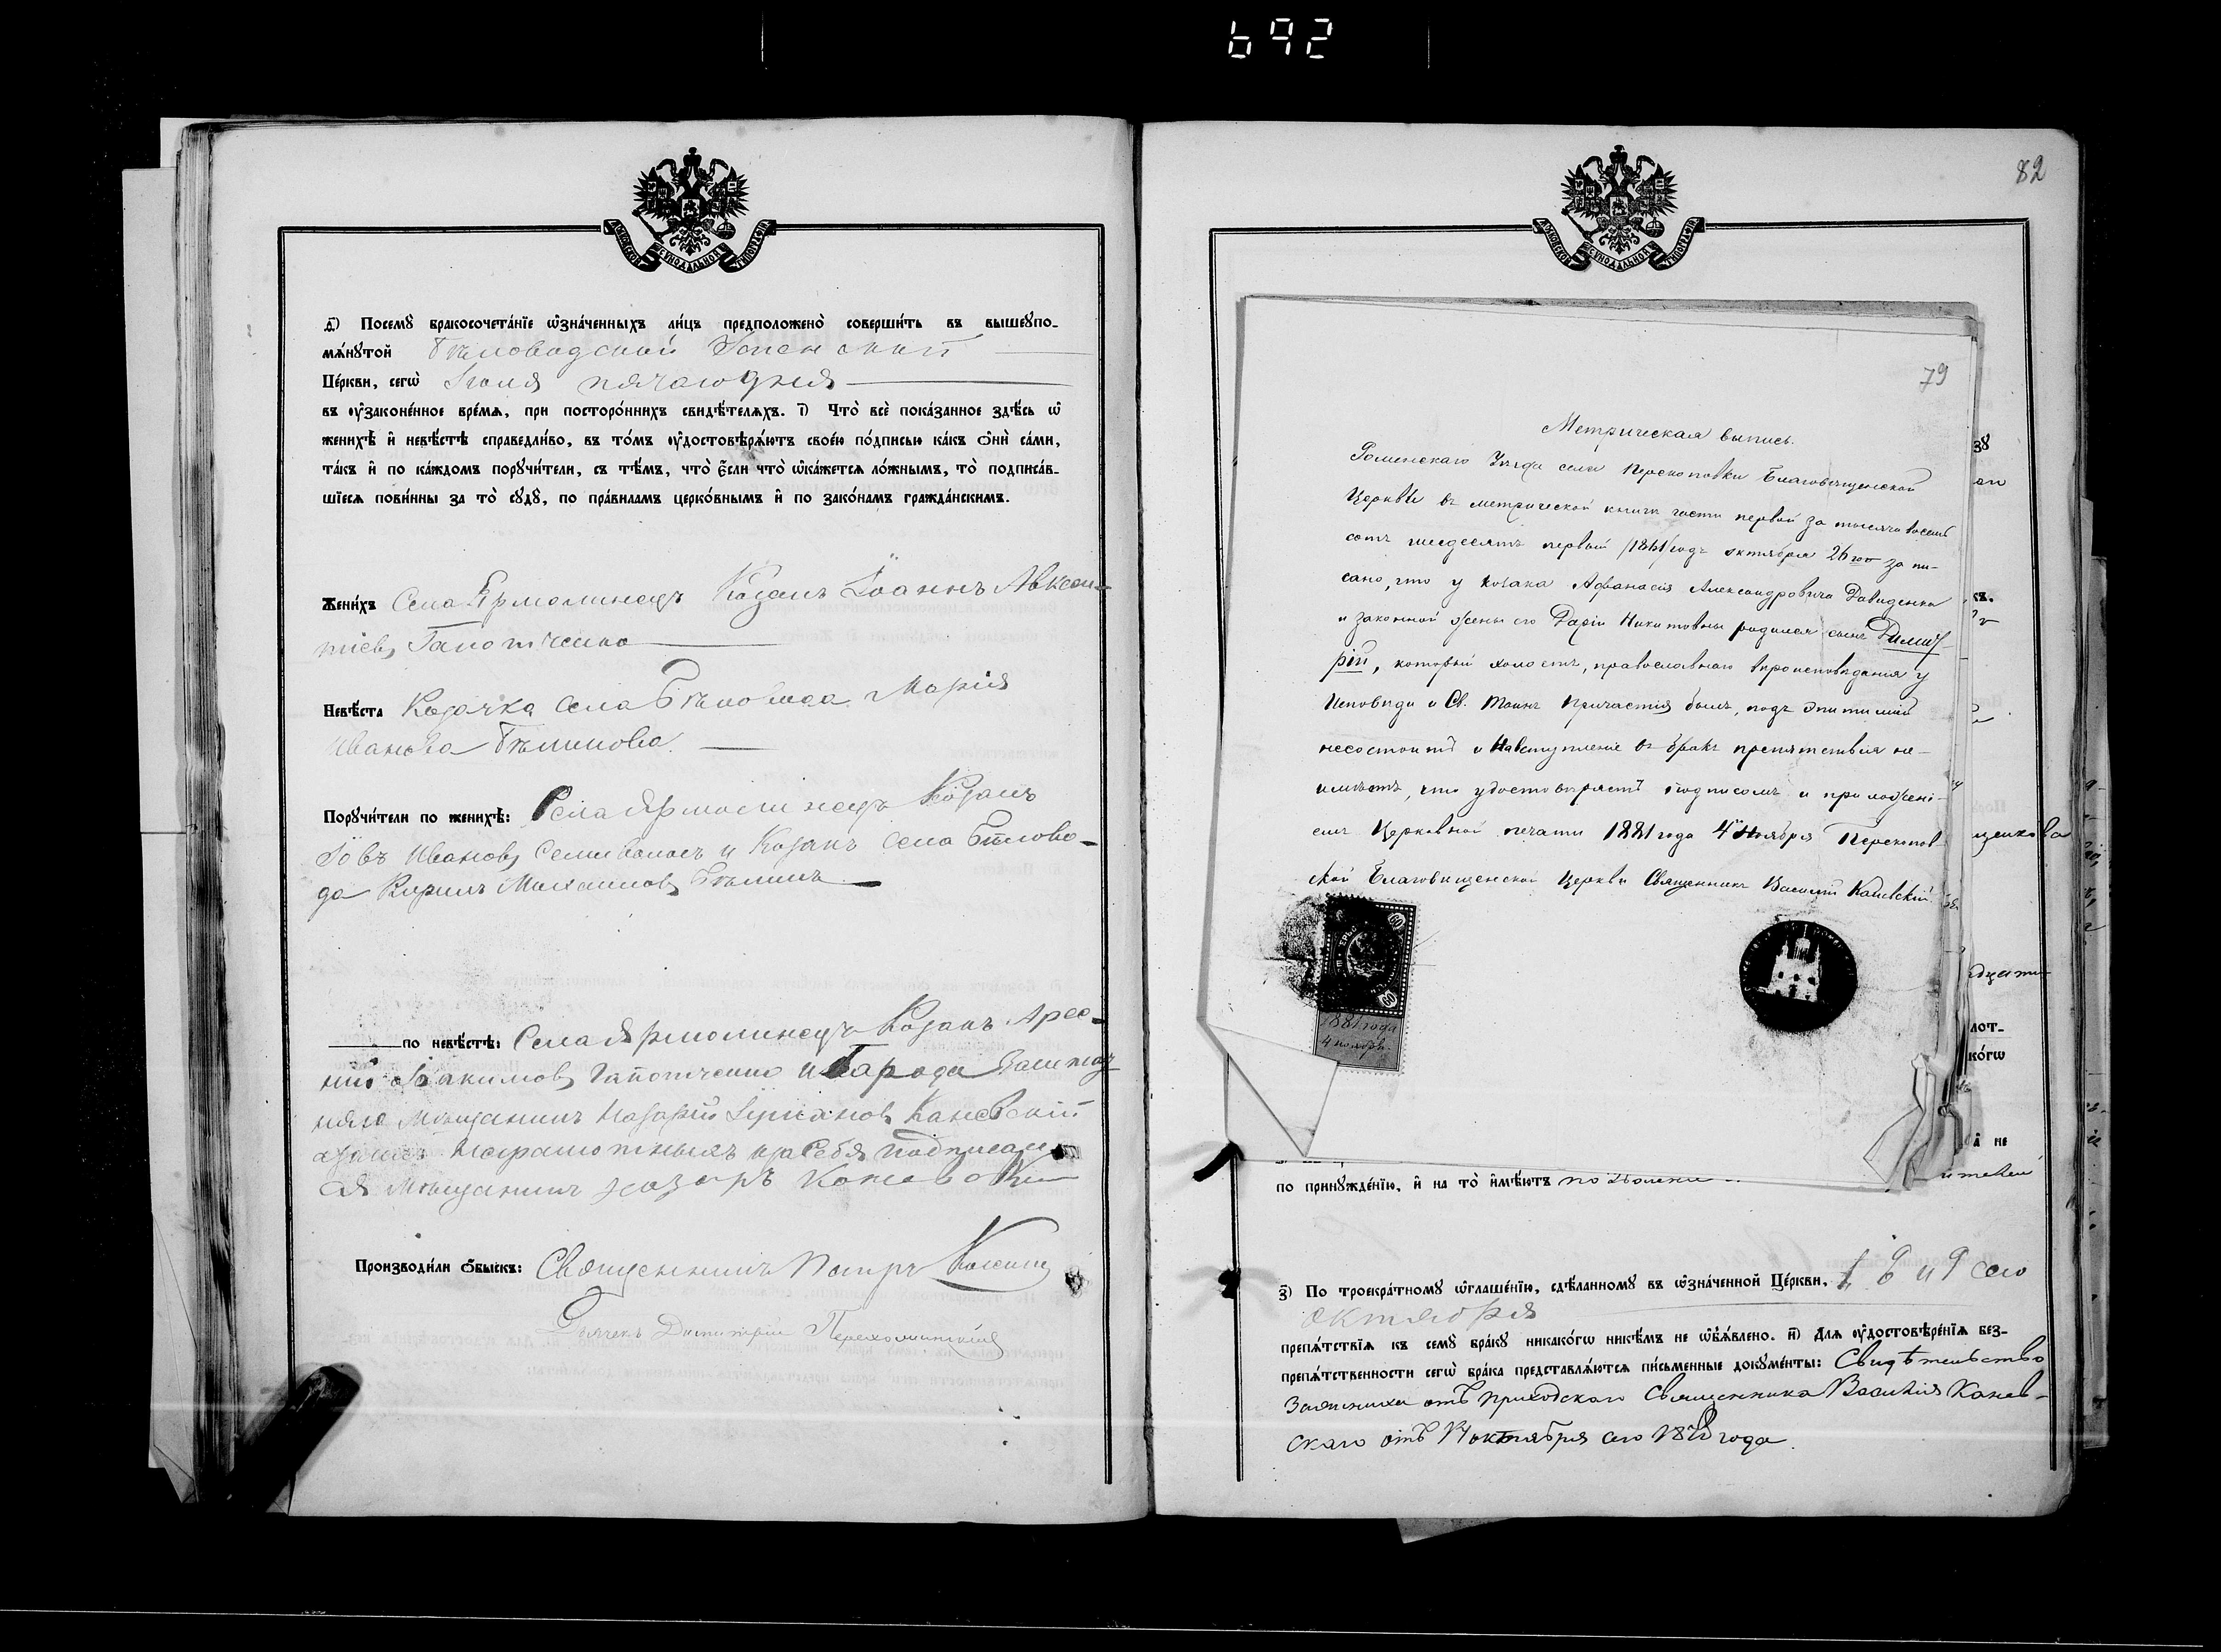 692
МОСКОВСКОЙ СѴНОДАЛЬНОЙ ТИПОГРАФІИ
ѳ҃) Посемꙋ бракосочета́нїе ѡ҆зна́ченныхъ ли́цъ предположено̀ соверши́ть въ вышеꙋпо-
мѧ́нꙋтой Бѣловодской Успенской
Це́ркви, сегѡ̀ Іюля пятаго дня
въ ᲂу҆законе́нное вре́мѧ, при посторо́ннихъ свидѣ́телѧхъ. і҃) Что̀ всѐ пока́занное здѣ́сь ѡ҆
женихѣ̀ и҆ невѣ́стѣ справедли́во, въ то́мъ ᲂу҆достовѣрѧ́ютъ свое́ю по́дписью ка́къ ѻ҆нѝ са́ми,
та́къ и҆ по ка́ждомъ порꙋчи́тели, съ тѣ́мъ, что̀ є҆́сли что̀ ѡ҆ка́жетсѧ ло́жнымъ, то̀ подписа́в-
шїесѧ пови́нны за то̀ сꙋдꙋ̀, по пра́виламъ церко́внымъ и҆ по зако́намъ гражда́нскимъ.
Жени́хъ Села Ярмолинецъ Козакъ Іоаннъ Авксен-
тіевъ Гапотченко
Невѣ́ста Козачка села Бѣловода Марія
Иванова Бѣлинова
Порꙋчи́тели по женихѣ̀: Села Ярмолинецъ Козакъ
Іовъ Ивановъ Семиволосъ и Козакъ села Бѣлово-
да Кирилъ Михаиловъ Бѣлинъ
по невѣ́стѣ: Села Ярмолинецъ Козакъ Арсе-
ній Іоакимовъ Гапотченко и Города
мѣщанинъ Назарій Каневскій
неграмотныхъ и за себя подписал
ся мѣщанинъ Назаръ Каневский
Производи́ли ѻ҆́быскъ: Священникъ Петръ
Дьячекъ Димитрій
82
79
Метрическая выпись.
Роменскаго Уѣзда села Перекоповки Благовѣщенской
Церкви въ метрической книгѣ части первой за тысяча восемь
сотъ шесдесятъ первый /1861/ годъ октября 26го за пи-
сано, что у козака Афанасія Александровича Давиденка
и законной жены его Даріи Никитовны родился сынъ Димит-
рій, который холостъ, православнаго вѣроисповѣданія у
Исповѣди и Св. Таинъ Причастія былъ, подъ эпитиміей
несостоитъ и на вступленіе въ бракъ препятствія не-
имѣетъ, что удостовѣряетъ подписомъ и приложені-
емъ Церковной печати 1881 года 4 Ноября Перекопов-
ской Благовѣщенской Церкви Священникъ Василій Каневскій
1881 года
4 ноября.
по принꙋжде́нїю, и҆ на то̀ и҆мѣ́ютъ позволение
з҃) По троекра́тномꙋ ѡ҆глаше́нїю, сдѣ́ланномꙋ въ ѡ҆зна́ченной Це́ркви, 1, 6 и 9 сего
октября
препѧ́тствїѧ къ семꙋ̀ бра́кꙋ никако́гѡ никѣ́мъ не ѡ҆б̾ѧ́влено. и҃) Длѧ ᲂу҆достовѣре́нїѧ без-
препѧ́тственности сегѡ̀ бра́ка представлѧ́ютсѧ пи́сьменные докꙋме́нты: Свидѣтельство
Жениха отъ Приходскаго Священника Василія Канев-
скаго отъ 14 октября сего года.